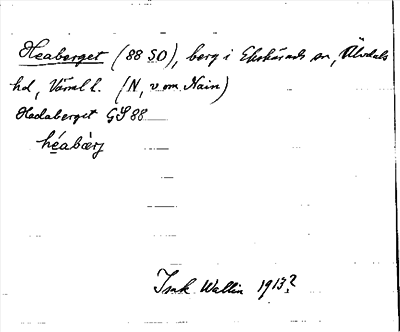 Heaberget (88 SO), berg i Ekshärads sn, Älvdals
hd, Värml l. (N, v om Nain)
Hedaberget GS 88
héabærj
Ink Wallin 1913?